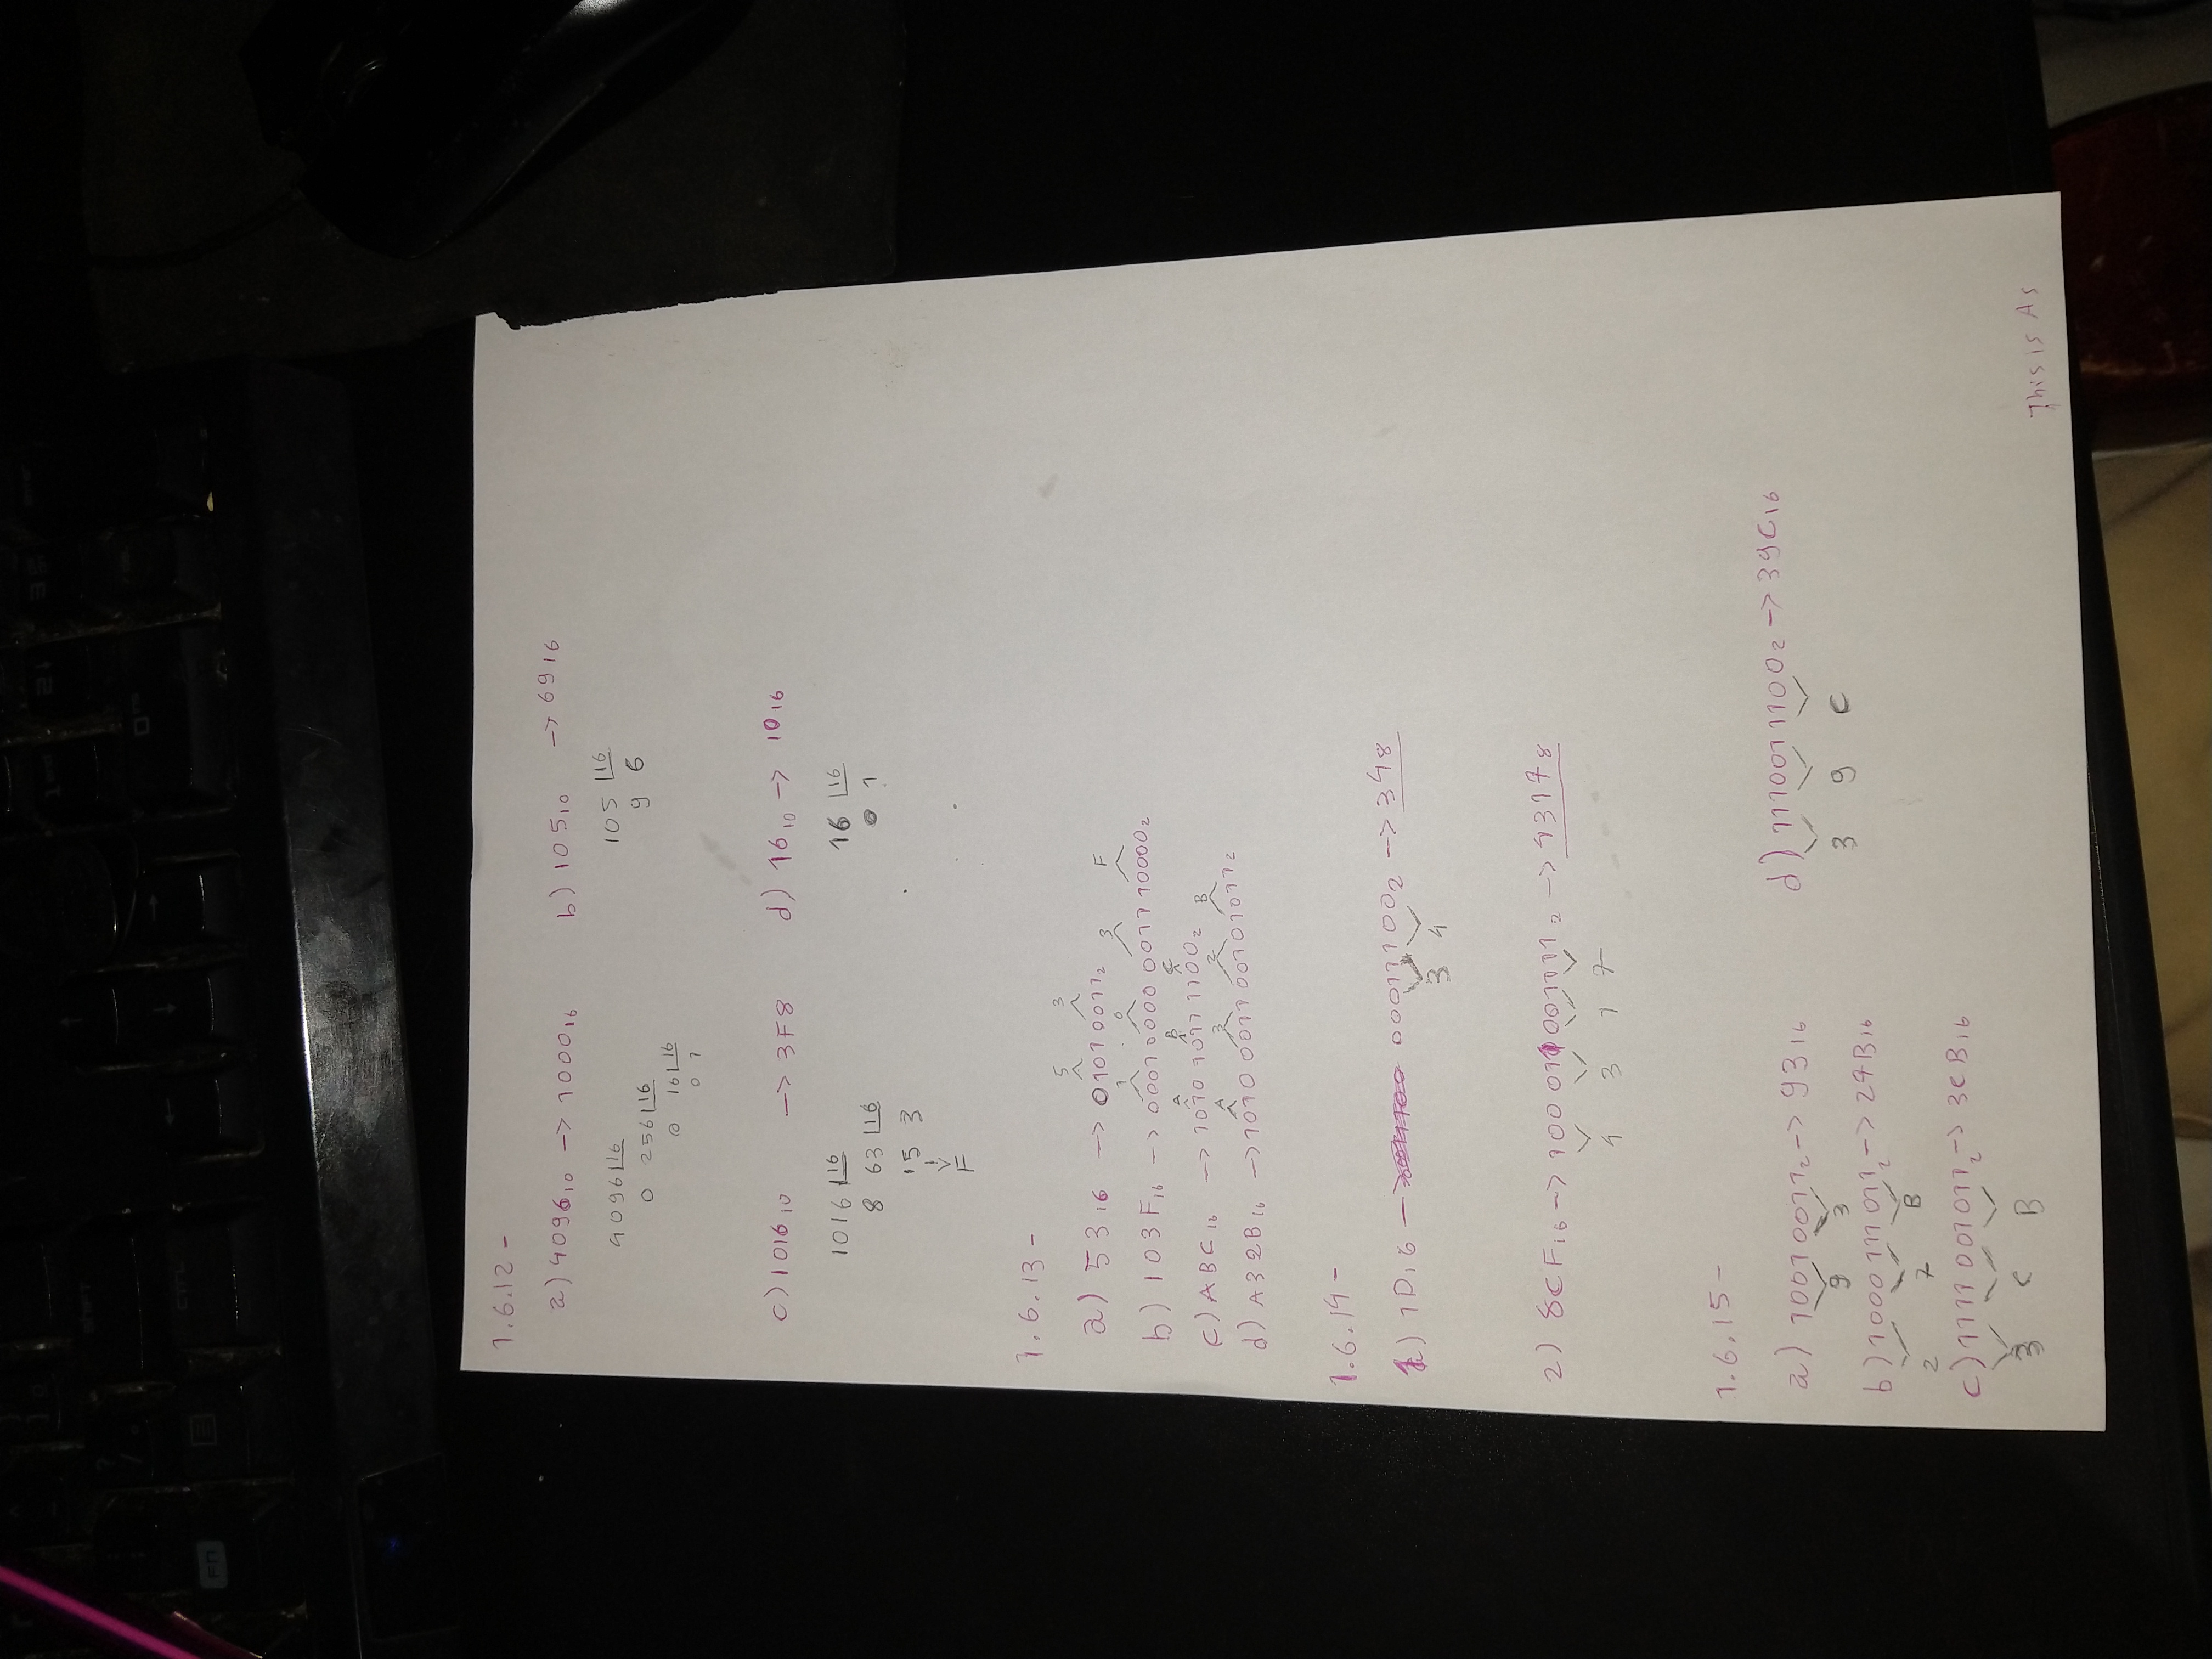 1.6.12 -
a) 4096₁₀ -> 1000₁₆
b) 105₁₀ -> 69₁₆
4096 16
0 256 16
0 16 16
0 1
105 16
9 6
c) 1016₁₀ -> 3F8
d) 16₁₀ -> 10₁₆
1016 16
8 63 16
15 3
F
16 16
0 1
1.6.13 -
5 3
a) 53₁₆ -> 01010011₂
1 0 3 F
b) 103F₁₆ -> 0001 0000 0011 10000₂
A B C
c) ABC₁₆ -> 1010 1011 1100₂
A 3 2 B
d) A32B₁₆ -> 1010 0011 0010 1011₂
1.6.14 -
1) 1D₁₆ - 00011100₂ -> 34₈
3 4
2) 8CF₁₆ -> 100 011 001111₂ -> 4317₈
4 3 1 7
1.6.15 -
a) 10010011₂ -> 93₁₆
9 3
b) 1000 111 011₂ -> 27B₁₆
2 7 B
c) 1111 001011₂ -> 3CB₁₆
3 C B
d) 1110011100₂ -> 39C₁₆
3 9 C
This is As